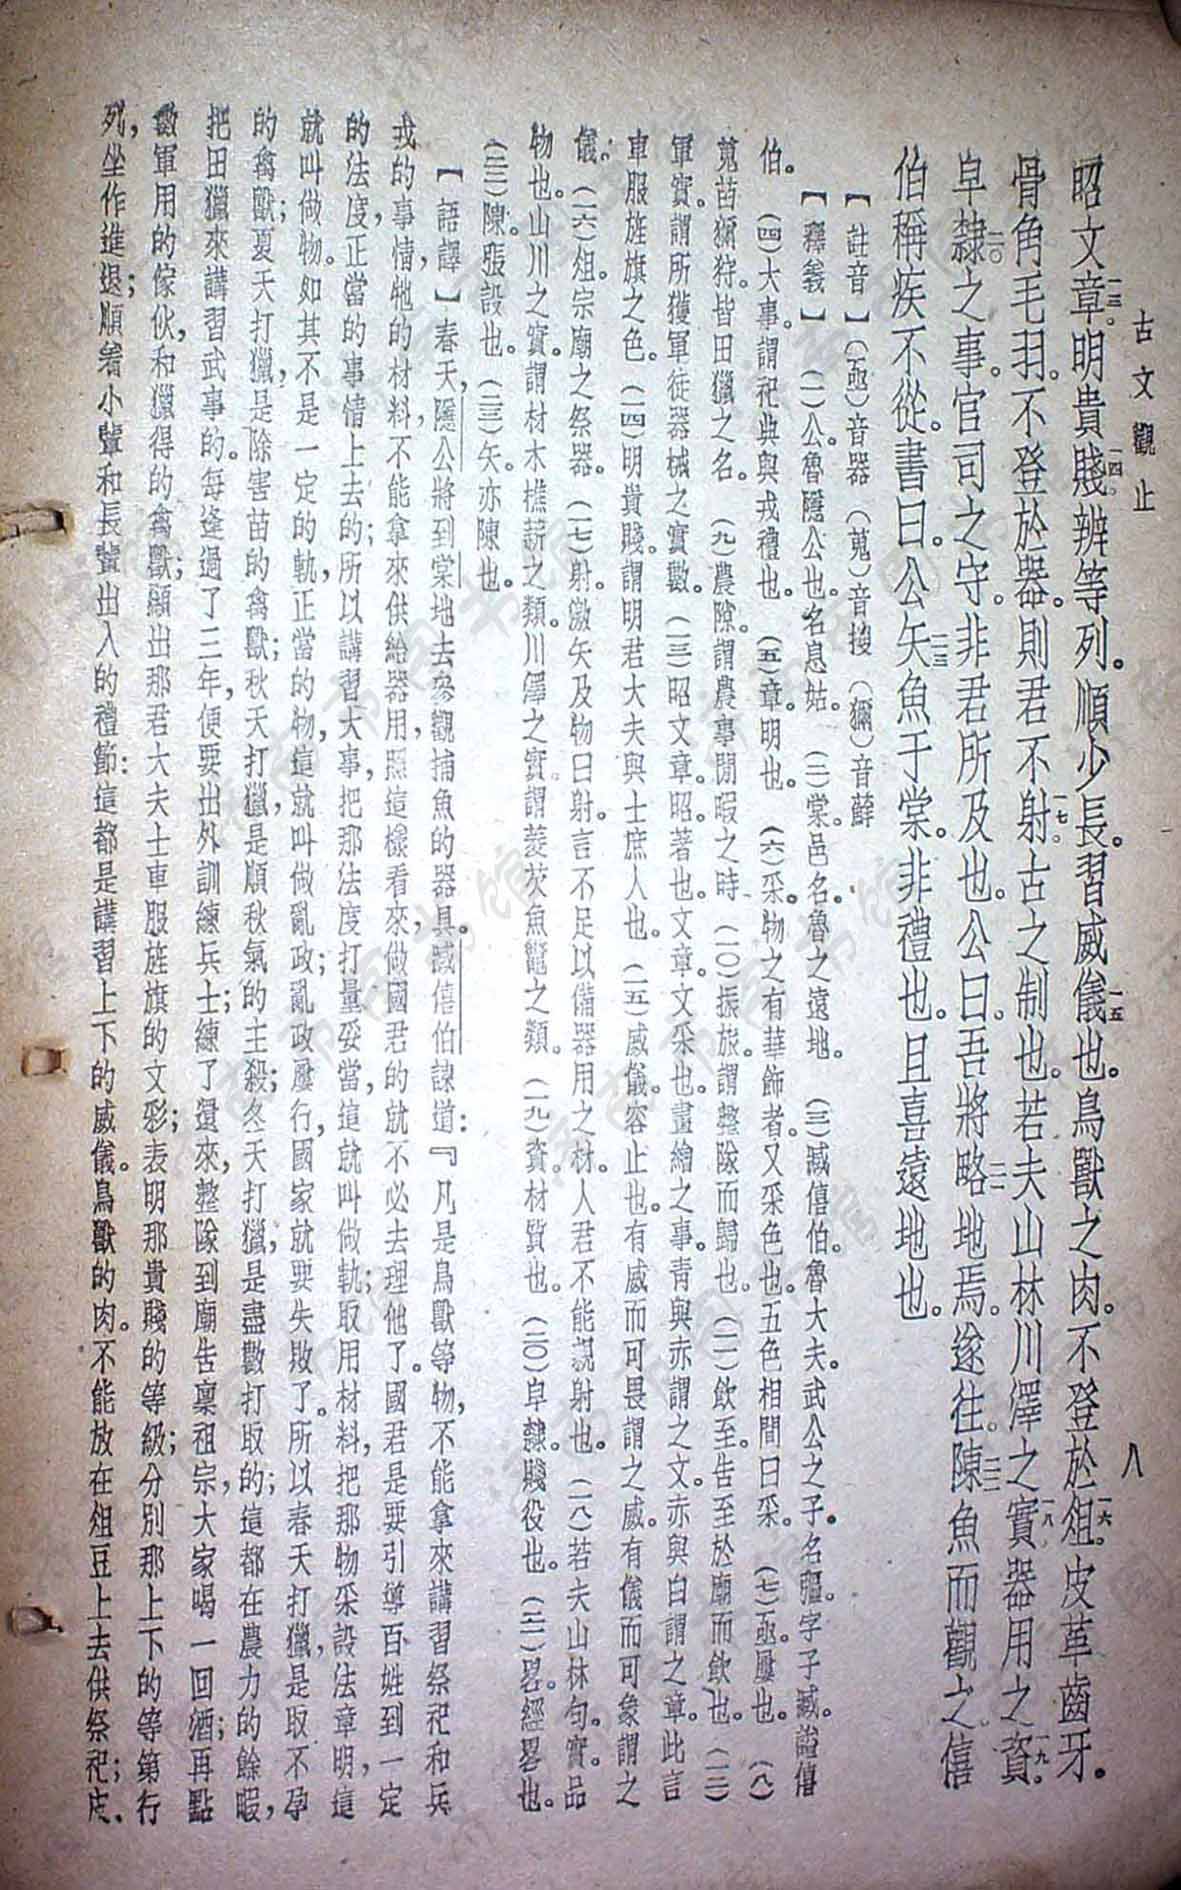 古文觀止
八
昭文章一三。明貴賤一四。辨等列。順少長。習威儀一五也。鳥獸之肉。不登於俎一六。皮革齒牙。
骨角毛羽。不登於器。則君不射一七。古之制也。若夫山林川澤之實一八器用之資一九。
皁隸二〇之事。官司之守。非君所及也。公曰。吾將略二一地焉。遂往。陳二二魚而觀之。僖
伯稱疾不從。書曰。公矢二三魚于棠。非禮也。且喜遠地也。
【註音】（亟）音器　（蒐）音搜　（獮）音蘚
【釋義】（一）公。魯隱公也。名息姑。（二）棠。邑名。魯之遠地。（三）臧僖伯。魯大夫。武公之子。名彄。字子臧。謚僖
伯。（四）大事。謂祀典與戎禮也。（五）章。明也。（六）采。物之有華飾者。又采色也。五色相間曰采。（七）亟。屢也。（八）
蒐苗獮狩。皆田獵之名。（九）農隙。謂農事閒暇之時。（一〇）振旅。謂整隊而歸也。（一一）飲至。告至於廟而飲也。（一二）
軍實。謂所獲軍徒器械之實數。（一三）昭文章。昭。著也。文章。文采也。畫繪之事。青與赤謂之文。赤與白謂之章。此言
車服旌旗之色。（一四）明貴賤。謂明君大夫與士庶人也。（一五）威儀。容止也。有威而可畏謂之威。有儀而可象謂之
儀。（一六）俎。宗廟之祭器。（一七）射。激矢及物曰射。言不足以備器用之材。人君不能親射也。（一八）若夫山林句。實。品
物也。山川之實。謂材木樵薪之類。川澤之實。謂菱芡魚鼈之類。（一九）資。材質也。（二〇）皁隸。賤役也。（二一）畧。經畧也。
（二二）陳。張設也。（二三）矢。亦陳也。
【語譯】春天，隱公將到棠地去參觀捕魚的器具。臧僖伯諫道：『凡是鳥獸等物，不能拿來講習祭祀和兵
戎的事情，牠的材料，不能拿來供給器用，照這樣看來，做國君的就不必去理他了。國君是要引導百姓到一定
的法度，正當的事情上去的；所以講習大事，把那法度打量妥當，這就叫做軌；取用材料，把那物采設法章明，這
就叫做物。如其不是一定的軌，正當的物，這就叫做亂政；亂政屢行，國家就要失敗了。所以春天打獵，是取不孕
的禽獸；夏天打獵，是除害苗的禽獸；秋天打獵，是順秋氣的主殺；冬天打獵，是盡數打取的；這都在農力的餘暇，
把田獵來講習武事的。每逢過了三年，便要出外訓練兵士；練了還來，整隊到廟告稟祖宗，大家喝一回酒；再點
數軍用的傢伙，和獵得的禽獸；顯出那君大夫士車服旌旗的文彩；表明那貴賤的等級；分別那上下的等第行
列，坐作進退；順着小輩和長輩出入的禮節：這都是講習上下的威儀。鳥獸的肉。不能放在俎豆上去供祭祀；皮、